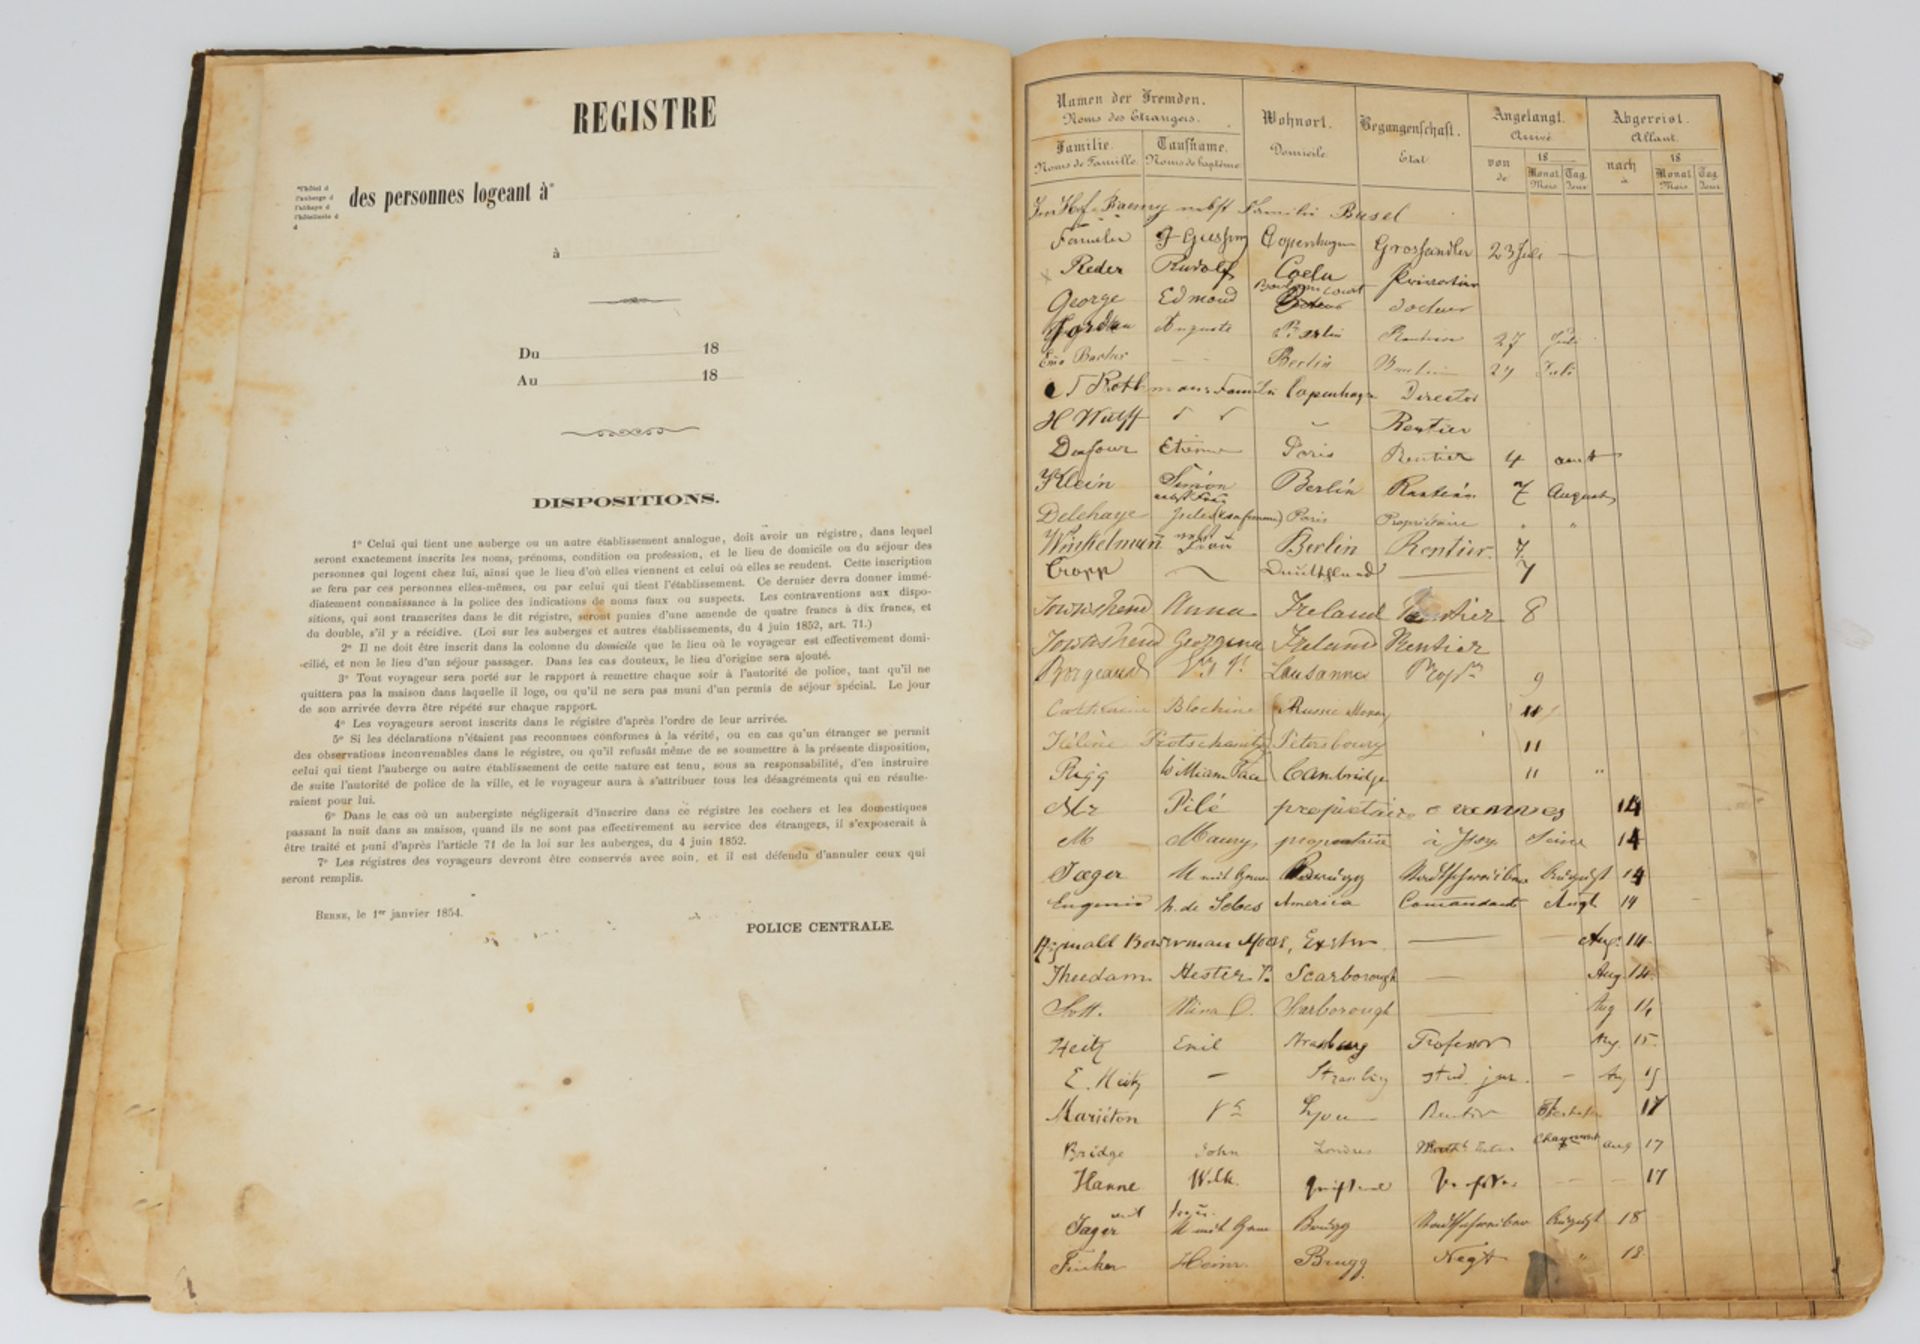 REGISTRE
des personnes logeant à*
*l'hôtel d
l'auberge d
l'abbaye d
l'hôtellerie d
d
à
Du 18
Au 18
DISPOSITIONS.
1° Celui qui tient une auberge ou un autre établissement analogue, doit avoir un régistre, dans lequel
seront exactement inscrits les noms, prénoms, condition ou profession, et le lieu de domicile ou du séjour des
personnes qui logent chez lui, ainsi que le lieu d'où elles viennent et celui où elles se rendent. Cette inscription
se fera par ces personnes elles-mêmes, ou par celui qui tient l'établissement. Ce dernier devra donner immé-
diatement connaissance à la police des indications de noms faux ou suspects. Les contraventions aux dispo-
sitions, qui sont transcrites dans le dit régistre, seront punies d'une amende de quatre francs à dix francs, et
du double, s'il y a récidive. (Loi sur les auberges et autres établissements, du 4 juin 1852, art. 71.)
2° Il ne doit être inscrit dans la colonne du domicile que le lieu où le voyageur est effectivement domi-
cilié, et non le lieu d'un séjour passager. Dans les cas douteux, le lieu d'origine sera ajouté.
3° Tout voyageur sera porté sur le rapport à remettre chaque soir à l'autorité de police, tant qu'il ne
quittera pas la maison dans laquelle il loge, ou qu'il ne sera pas muni d'un permis de séjour spécial. Le jour
de son arrivée devra être répété sur chaque rapport.
4° Les voyageurs seront inscrits dans le régistre d'après l'ordre de leur arrivée.
5° Si les déclarations n'étaient pas reconnues conformes à la vérité, ou en cas qu'un étranger se permit
des observations inconvenables dans le régistre, ou qu'il refusât même de se soumettre à la présente disposition,
celui qui tient l'auberge ou autre établissement de cette nature est tenu, sous sa responsabilité, d'en instruire
de suite l'autorité de police de la ville, et le voyageur aura à s'attribuer tous les désagréments qui en résulte-
raient pour lui.
6° Dans le cas où un aubergiste négligerait d'inscrire dans ce régistre les cochers et les domestiques
passant la nuit dans sa maison, quand ils ne sont pas effectivement au service des étrangers, il s'exposerait à
être traité et puni d'après l'article 71 de la loi sur les auberges, du 4 juin 1852.
7° Les régistres des voyageurs devront être conservés avec soin, et il est défendu d'annuler ceux qui
seront remplis.
BERNE, le 1er janvier 1854.
POLICE CENTRALE.
Namen der Fremden. Wohnort. Begangenschaft. Angelangt. Abgereist.
Noms des Etrangers. Domicile. Etat. Arrivé. Allant.
Familie. Taufname. von 18 nach 18
Noms de Famille. Noms de baptême. de Monat Tag à Monat Tag
Mois Jour Mois Jour
nebst Familie Basel
Copenhagen 23 Juli
Reder Rudolf Coeln
George Edmond docteur
Auguste Berlin Rentier 27 Juli
Berlin 27 Juli
Familie Copenhagen Director
H Wulff Rentier
Dufour Etienne Paris Rentier 4 aout
Klein Simon Berlin Rentier 7 August
nebst Frau
Delehaye Jules Paris Propriétaire " "
Winkelmann nebst Frau Berlin Rentier. 7.
Cropp Deutschland 7
Townshend Anna Ireland Rentier 8
Townshend Georgina Ireland Rentier
Borgeaud Lausanne 9
Catherine Blochine Russie 11
Hélène Petersbourg 11
Rigg William Cambridge 11 "
Mr Pilé propriétaire a vannes 14
M Mauny propriétaire à Issy Seine 14
Jaeger Brugg Stadtschreiber August 14
Eugenio America Comandante Augt 14
Reginald Bowerman Moore, Exeter Aug. 14
Theedam Hester Scarborough Aug 14.
Scott. Mina C. Scarborough Aug 14
Heitz Emil Strasburg Professor Aug. 15.
E. Heitz Strassburg stud. jur. Aug 15
Mariéton Lyon Rentier 17
Bridge John Londres Chaumont Aug 17
Hanne Wilh. 17
Jager Brugg Stadtschreiber August 18
Heinr. Brugg Negt " 18